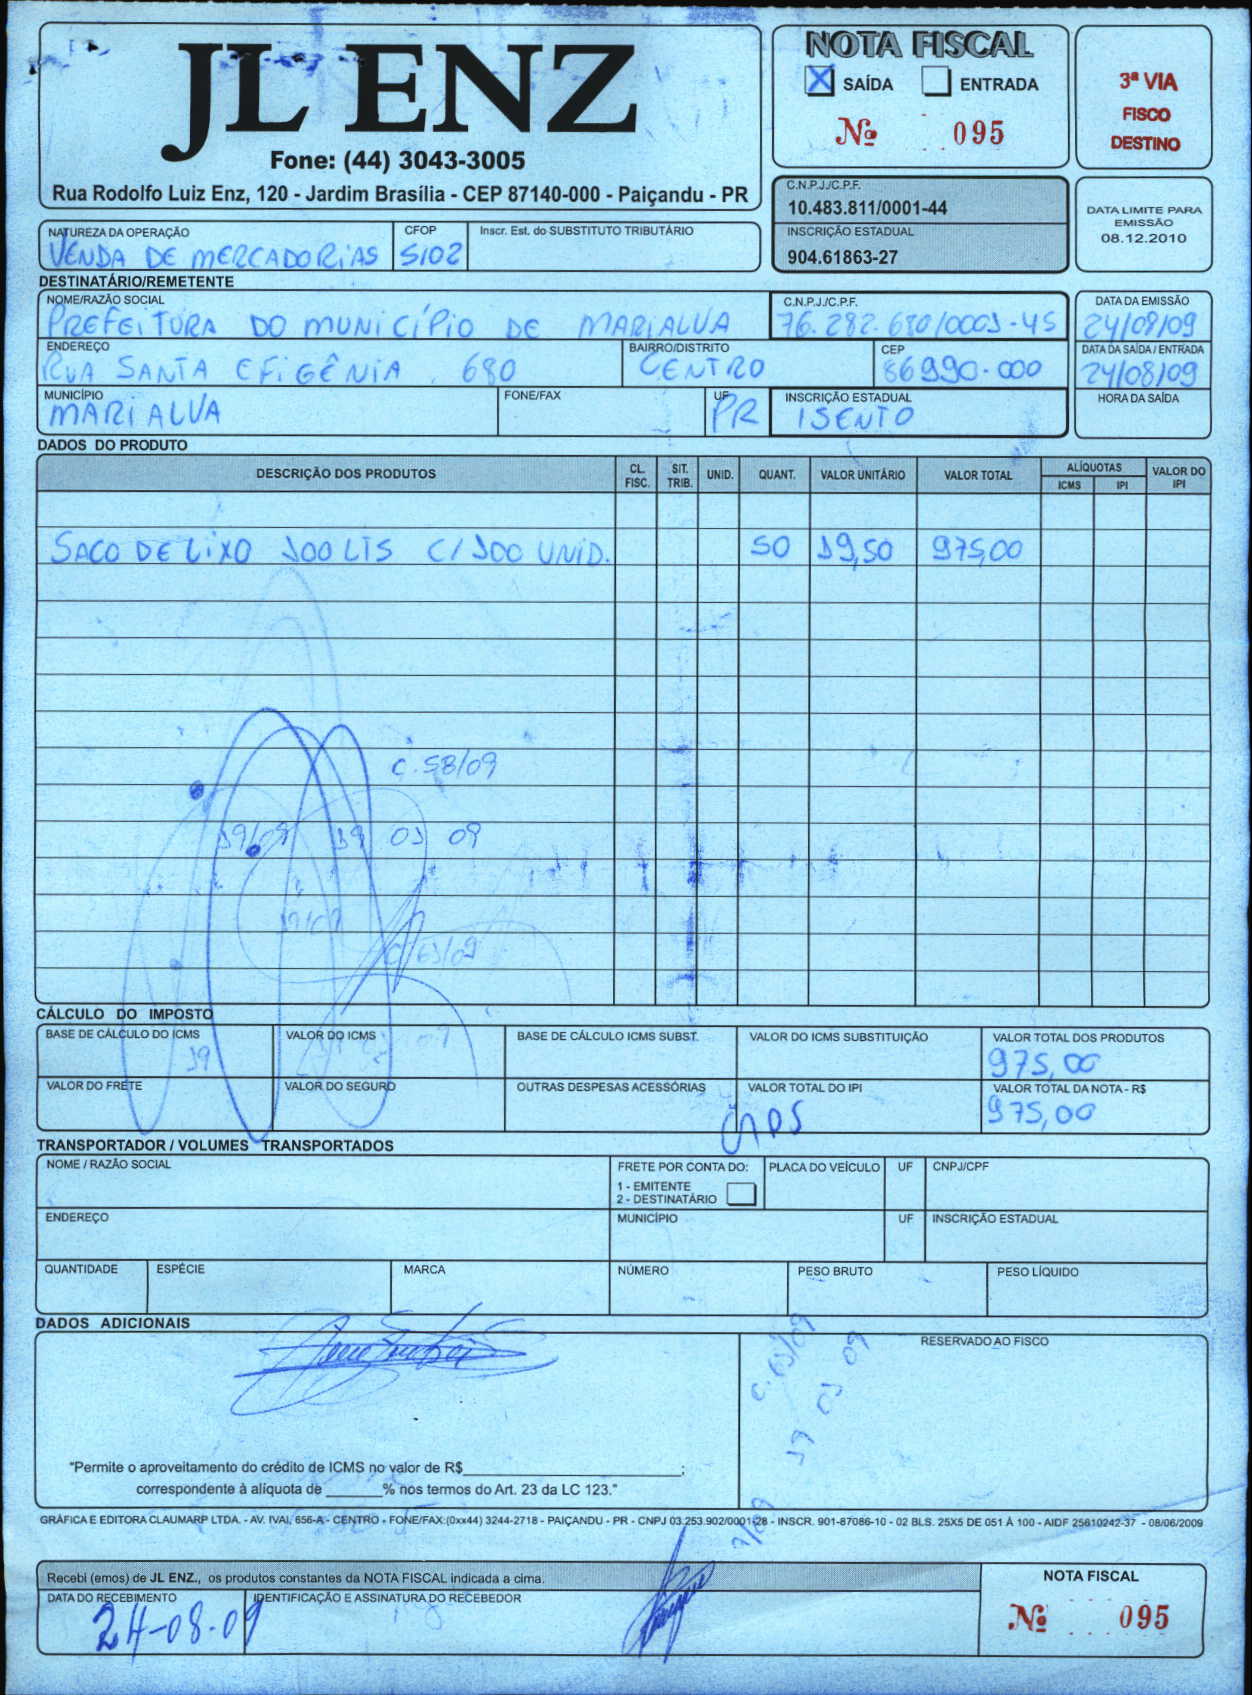 JL ENZ
Fone: (44) 3043-3005
Rua Rodolfo Luiz Enz, 120 - Jardim Brasília - CEP 87140-000 - Paiçandu - PR
NOTA FISCAL
X SAÍDA ENTRADA
Nº 095
3ª VIA
FISCO
DESTINO
C.N.P.J./C.P.F.
10.483.811/0001-44
INSCRIÇÃO ESTADUAL
904.61863-27
DATA LIMITE PARA
EMISSÃO
08.12.2010
NATUREZA DA OPERAÇÃO CFOP Inscr. Est. do SUBSTITUTO TRIBUTÁRIO
VENDA DE MERCADORIAS 5102
DESTINATÁRIO/REMETENTE
NOME/RAZÃO SOCIAL C.N.P.J./C.P.F. DATA DA EMISSÃO
PREFEITURA DO MUNICÍPIO DE MARIALVA 76.282.680/0001-45 24/08/09
ENDEREÇO BAIRRO/DISTRITO CEP DATA DA SAÍDA / ENTRADA
RUA SANTA EFIGÊNIA, 680 CENTRO 86990-000 24/08/09
MUNICÍPIO FONE/FAX UF INSCRIÇÃO ESTADUAL HORA DA SAÍDA
MARIALVA PR ISENTO
DADOS DO PRODUTO
DESCRIÇÃO DOS PRODUTOS CL. FISC. SIT. TRIB. UNID. QUANT. VALOR UNITÁRIO VALOR TOTAL ALÍQUOTAS ICMS IPI VALOR DO IPI
SACO DE LIXO 100 LTS C/ 100 UNID. 50 19,50 975,00
C. 58/09
19/09 19 01 09
19/09
C. 61/09
CÁLCULO DO IMPOSTO
BASE DE CÁLCULO DO ICMS VALOR DO ICMS BASE DE CÁLCULO ICMS SUBST. VALOR DO ICMS SUBSTITUIÇÃO VALOR TOTAL DOS PRODUTOS
19 975,00
VALOR DO FRETE VALOR DO SEGURO OUTRAS DESPESAS ACESSÓRIAS VALOR TOTAL DO IPI VALOR TOTAL DA NOTA - R$
975,00
TRANSPORTADOR / VOLUMES TRANSPORTADOS
NOME / RAZÃO SOCIAL FRETE POR CONTA DO: PLACA DO VEÍCULO UF CNPJ/CPF
1 - EMITENTE
2 - DESTINATÁRIO
ENDEREÇO MUNICÍPIO UF INSCRIÇÃO ESTADUAL
QUANTIDADE ESPÉCIE MARCA NÚMERO PESO BRUTO PESO LÍQUIDO
DADOS ADICIONAIS
RESERVADO AO FISCO
C. 61/09
19 01 09
"Permite o aproveitamento do crédito de ICMS no valor de R$____________________;
correspondente à alíquota de _______% nos termos do Art. 23 da LC 123."
GRÁFICA E EDITORA CLAUMARP LTDA. - AV. IVAI, 656-A - CENTRO - FONE/FAX:(0xx44) 3244-2718 - PAIÇANDU - PR - CNPJ 03.253.902/0001-28 - INSCR. 901-87086-10 - 02 BLS. 25X5 DE 051 À 100 - AIDF 25610242-37 - 08/06/2009
Recebi (emos) de JL ENZ., os produtos constantes da NOTA FISCAL indicada a cima.
DATA DO RECEBIMENTO IDENTIFICAÇÃO E ASSINATURA DO RECEBEDOR
24-08-09
NOTA FISCAL
Nº 095